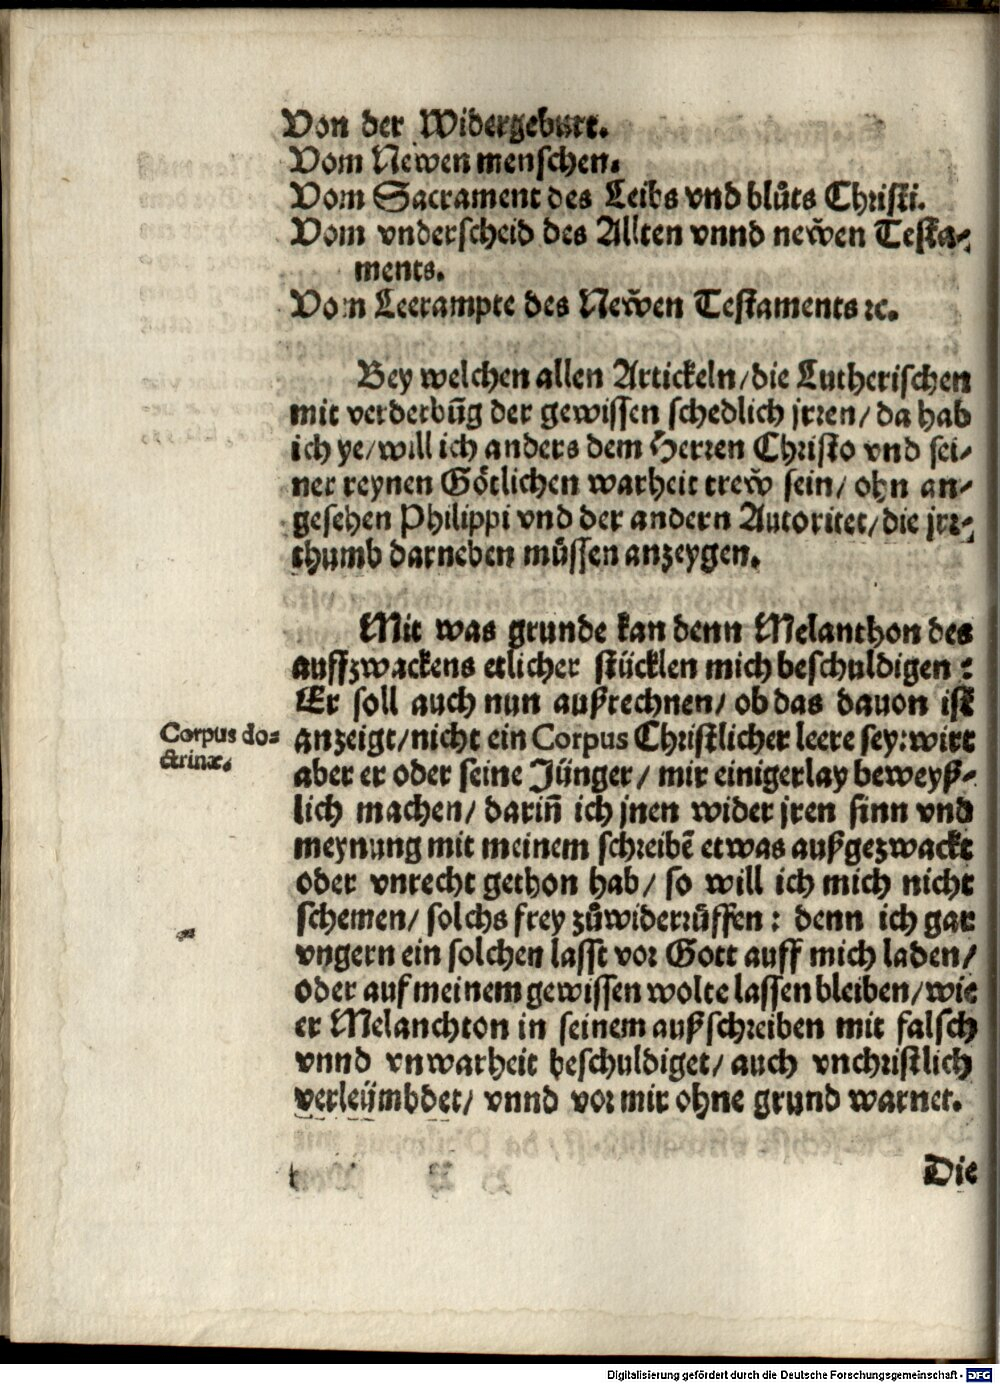 Von der Widergeburt.
Vom Newen menschen.
Vom Sacrament des Leibs vnd blůts Christi.
Vom vnderscheid des Allten vnnd neẘen Testa-
ments.
Vom Leerampte des Neẘen Testaments ꝛc.
Bey welchen allen Artickeln/die Lutherischen
mit verderbūg der gewissen schedlich jrren/da hab
ich ye/will ich anders dem Herren Christo vnd sei-
ner reynen Götlichen warheit treẘ sein/ohn an-
gesehen Philippi vnd der andern Autoritet/die jrr-
thumb darneben müssen anzeygen.
Mit was grunde kan denn Melanthon des
auffzwackens etlicher stücklen mich beschuldigen?
Er soll auch nun außrechnen/ob das dauon ist
Corpus do-
ctrinæ.
anzeigt/nicht ein Corpus Christlicher leere sey:wirt
aber er oder seine Jünger/mir einigerlay beweyß-
lich machen/darin̄ ich jnen wider jren sinn vnd
meynung mit meinem schreibē etwas außgezwackt
oder vnrecht gethon hab/so will ich mich nicht
schemen/solchs frey zůwiderrůffen: denn ich gar
vngern ein solchen lasst vor Gott auff mich laden/
oder auf meinem gewissen wolte lassen bleiben/wie
er Melanchton in seinem außschreiben mit falsch
vnnd vnwarheit beschuldiget/auch vnchristlich
verleümbdet/vnnd vor mir ohne grund warnet.
Die
Digitalisierung gefördert durch die Deutsche Forschungsgemeinschaft - DFG